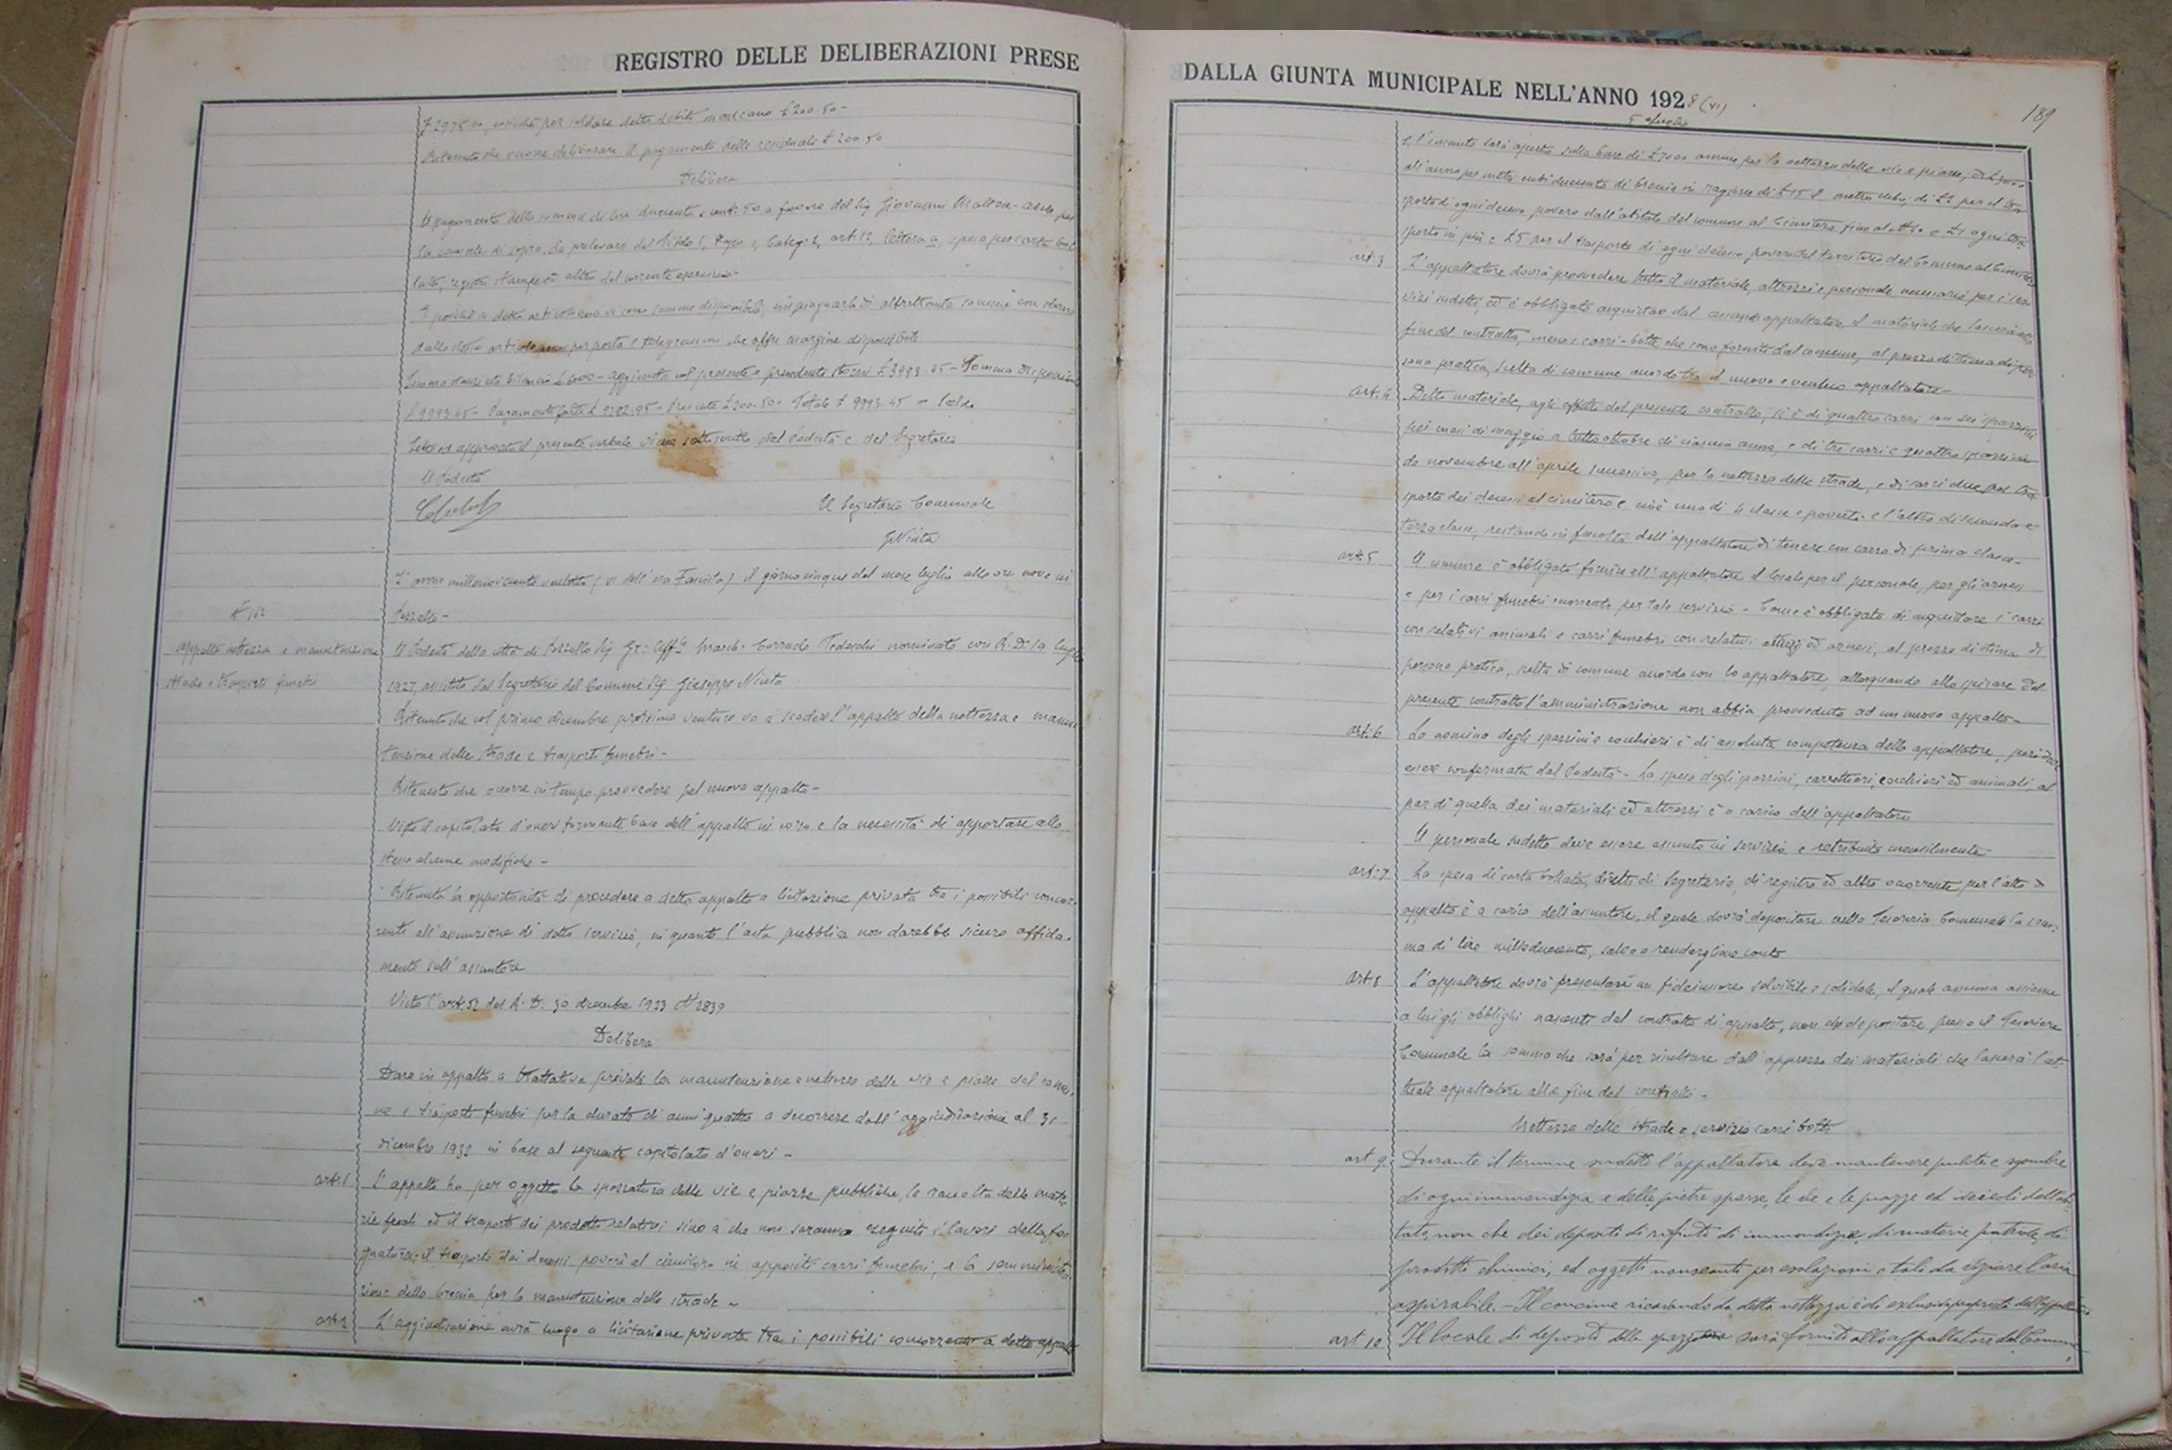 REGISTRO DELLE DELIBERAZIONI PRESE
£ 2975.00, sicchè per saldare detto debito mancano £ 200.50 -
Ritenuto che occorre deliberare il pagamento delle residuali £ 200.50
Delibera
Il pagamento della somma di lire duecento e cent. 50 a favore del Sig Giovanni
la causale di sopra, da prelevare dal Titolo I, Capo 1, Categ: 2, art. 12, lettera a, spesa per carta bol
lata, registri stampe ed altro del corrente esercizio -
E poichè a detto articolo non vi sono somme disponibili, impinguarlo di altrettanta somma con storno
dallo stesso articolo per posta e telegrammi che offre margine disponibile
Somma stanziata bilancio £ 6000 - aggiunta col presente e precedente storni £ 3993.45 - Somma disponibile
£ 9993.45 - Pagamenti fatti £ 9792.95 - Presente £ 200.50 - Totale £ 9993.45 - Saldo
Letto ed approvato il presente verbale viene sottoscritto dal Podestà e dal Segretario
Il Podestà
Il Segretario Comunale
GNinta
L'anno millenovecento ventotto (VI dell'era Fascista) il giorno cinque del mese luglio alle ore nove in
N° 162
appalto nettezza e manutenzione
strade e trasporti funebri
Il Podestà della città di Sig. Gr: Uff. March: Corrado Tedeschi nominato con R. D. 19 luglio
1927, assistito dal Segretario del Comune Sig Giuseppe Ninta
Ritenuto che col primo dicembre prossimo venturo va a scadere l'appalto della nettezza e manu
tenzione delle strade e trasporti funebri -
Ritenuto che occorre in tempo provvedere pel nuovo appalto -
Visto il capitolato d'oneri formante base dell'appalto in corso e la necessità di apportare allo
stesso alcune modifiche -
Ritenuta la opportunità di procedere a detto appalto a licitazione privata tra i possibili concor
renti all'assunzione di detto servizio, in quanto l'asta pubblica non darebbe sicuro affida-
mento sull'assuntore
Visto l'art. 52 del R. D. 30 dicembre 1923 N° 2839
Delibera
Dare in appalto a trattative private la manutenzione e nettezza delle vie e piazze del comu
ne e trasporti funebri per la durata di anni quattro a decorrere dall'aggiudicazione al 31
dicembre 1932 in base al seguente capitolato d'oneri -
art. 1 L'appalto ha per oggetto la spazzatura delle vie e piazze pubbliche, la raccolta delle mate
rie fecali ed il trasporto dei prodotti relativi sino a che non saranno eseguiti i lavori della fo
gnatura, il trasporto dei decessi poveri al cimitero in appositi carri funebri, e la somministra
zione della breccia per la manutenzione delle strade -
art. 2 L'aggiudicazione avrà luogo a licitazione privata tra i possibili concorrenti a detto appalto
DALLA GIUNTA MUNICIPALE NELL'ANNO 1928 (VI)
5 Luglio
189
L'incanto sarà aperto sulla base di £ 7000 annue per la nettezza delle vie e piazze, di £ 3000
all'anno per metri cubi duecento di breccia in ragione di £ 15 il metro cubo; di £ 2 per il tra
sporto di ogni decesso povero dall'abitato del comune al Cimitero, fino al e £ 1 ogni tra
sporto in più e £ 5 per il trasporto di ogni decesso povero del territorio del Comune al Cimitero
art. 3 L'appaltatore dovrà provvedere tutto il materiale, attrezzi e personale necessario per i ser
vizi sudetti, ed è obbligato acquistare dal cessando appaltatore il materiale che lascerà alla
fine del contratto, meno i carri-botte che sono forniti dal comune, al prezzo di stima di per
sona pratica, scelta di comune accordo tra il nuovo e vecchio appaltatore
art. 4 Detto materiale, agli effetti del presente contratto, si è di quattro carri con sei spazzini
pei mesi di maggio a tutto ottobre di ciascun anno, e di tre carri e quattro spazzini
da novembre all'aprile successivo, per la nettezza delle strade, e di carri due pel tra
sporto dei decessi al cimitero e cioè uno di 4 classe e poveri e l'altro di seconda e
terza classe, restando in facoltà dell'appaltatore di tenere un carro di prima classe -
art. 5 Il comune è obbligato fornire all'appaltatore il locale per il personale, per gli arnesi
e per i carri funebri occorrente per tale servizio - Come è obbligato di acquistare i carri
con relativi animali e carri funebri con relativi attrezzi ed arnesi, al prezzo di stima di
persona pratica, scelta di comune accordo con lo appaltatore, allorquando allo spirare del
presente contratto l'amministrazione non abbia provveduto ad un nuovo appalto -
art. 6 La nomina degli spazzini e cocchieri è di assoluta competenza dello appaltatore, però deve
essere confermata dal Podestà - La spesa degli spazzini, carrettieri, cocchieri ed animali, al
par di quella dei materiali ed attrezzi è a carico dell'appaltatore
Il personale sudetto deve essere assunto in servizio e retribuito mensilmente
art. 7 La spesa di carta bollata, diritti di Segreteria, di registro ed altro occorrente, per l'atto di
appalto è a carico dell'assuntore, il quale dovrà depositare nella Tesoreria Comunale la som
ma di lire milleduecento, salvo a renderglisene conto
art. 8 L'appaltatore dovrà presentare un fideiussore solvibile e solidale, il quale assuma assieme
a lui gli obblighi nascenti dal contratto di appalto, non che depositare presso il Tesoriere
Comunale la somma che sarà per risultare dall'apprezzo dei materiali che lascerà l'at-
tuale appaltatore alla fine del contratto -
Nettezza delle strade e servizio carri botte
art 9 Durante il termine sudetto l'appaltatore deve mantenere pulite e sgombre
di ogni immondizia e delle pietre sparse, le vie e le piazze ed vicoli dell'abi
tato, non che dei depositi di rifiuti di immondizie, di materie putride, di
prodotti chimici, ed oggetti nauseanti per esalazioni o tali da viziare l'aria
aspirabile. - Il concime ricavando da detta nettezza è di esclusiva proprietà dell'appaltatore
art 10 Il locale di deposito delle spazzature sarà fornito allo appaltatore dal Comune